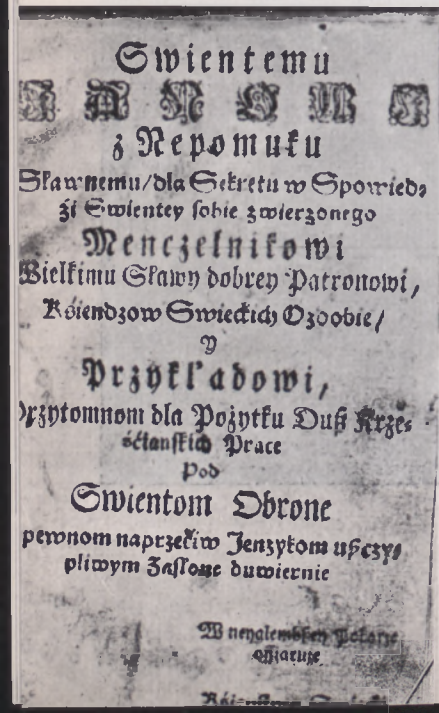 Swientemu
JANOWI
z Nepomuku
Sławnemu/dla Sekretu w Spowied⸗
źi Swientey sobie zwierzonego
Menczelnikowi
Wielkimu Sławy dobrey Patronowi,
Ksiendzow Swieckich Ozdobie/
Y
Przykładowi,
przytomnom dla Pożytku Duß Krze⸗
śćianskich Prace
Pod
Swientom Obrone
pewnom naprzećiw Jenzykom ußczy⸗
pliwym Zasłone duwiernie
W neyglembßey Pokorze
ofiaruje